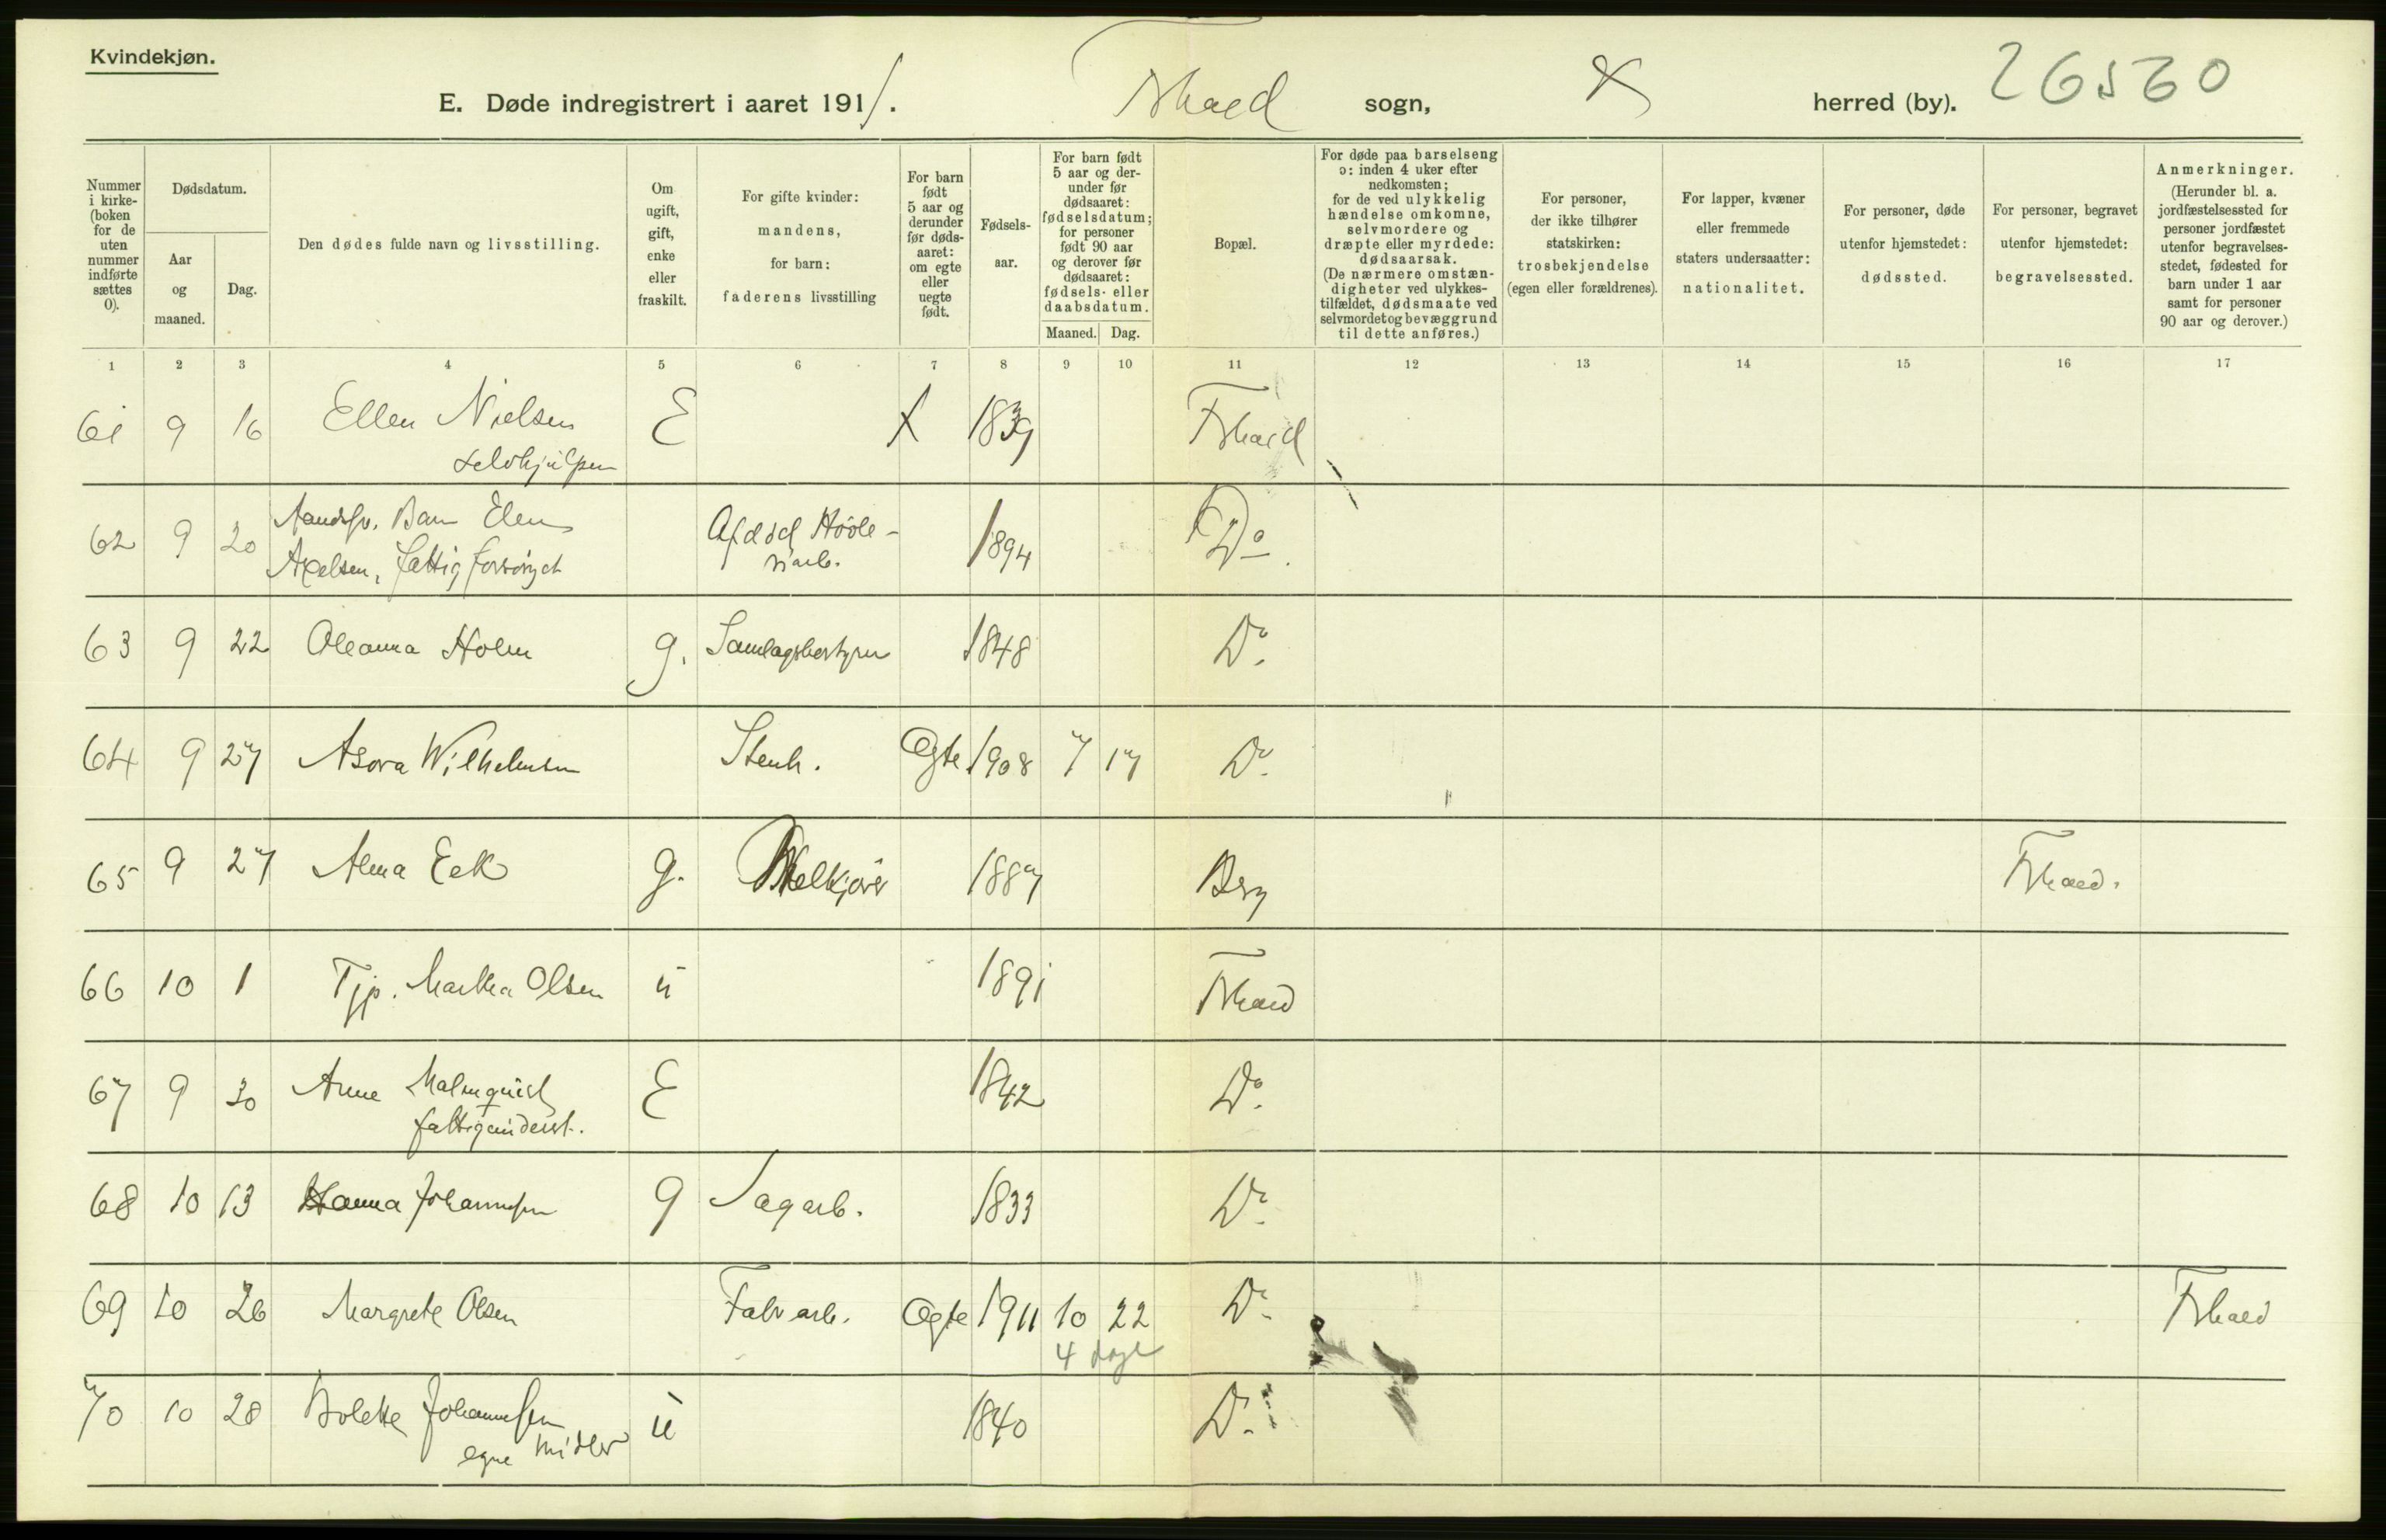 Kvindekjøn.
E. Døde indregistrert i aaret 1911. Fr.hald sogn, herred (by). 26560
Nummer i kirke-(boken for de uten nummer indførte sættes 0).
Dødsdatum.
Aar og maaned.
Dag.
Den dødes fulde navn og livsstilling.
Om ugift, gift, enke eller fraskilt.
For gifte kvinder: mandens, for barn: faderens livsstilling
For barn født 5 aar og derunder før døds-aaret: om egte eller uegte født.
Fødsels-aar.
For barn født 5 aar og der-under før dødsaaret: fødselsdatum; for personer født 90 aar og derover før dødsaaret: fødsels- eller daabsdatum.
Maaned. Dag.
Bopæl.
For døde paa barselseng ɔ: inden 4 uker efter nedkomsten; for de ved ulykkelig hændelse omkomne, selvmordere og dræpte eller myrdede: dødsaarsak. (De nærmere omstæn-digheter ved ulykkes-tilfældet, dødsmaate ved selvmordet og bevæggrund til dette anføres.)
For personer, der ikke tilhører statskirken: trosbekjendelse (egen eller forældrenes).
For lapper, kvæner eller fremmede staters undersaatter: nationalitet.
For personer, døde utenfor hjemstedet: dødssted.
For personer, begravet utenfor hjemstedet: begravelsessted.
Anmerkninger. (Herunder bl. a. jordfæstelsessted for personer jordfæstet utenfor begravelses-stedet, fødested for barn under 1 aar samt for personer 90 aar og derover.)
1 2 3 4 5 6 7 8 9 10 11 12 13 14 15 16 17
61 9 16 Ellen Nielsen E X 1839 Fr.hald
selvhjulpen
62 9 20 Aandssv. Barn Elen Afdød Høvle- 1894 Do.
Axelsen, fattigforsørget riarb.
63 9 22 Oleanna Holm g. Samlagsbestyrer 1848 Do.
64 9 27 Asora Wilhelmsen Stenh. Ægte 1908 7 17 Do.
65 9 27 Alma Eek g. Melkjører 1887 Berg Fr.hald.
66 10 1 Tjp. Martha Olsen u 1891 Fr.hald
67 9 30 Anne Malmquist E 1842 Do.
fattigunderst.
68 10 13 Hanna Johannesen g Sagarb. 1833 Do.
69 10 26 Margrete Olsen Fabr arb. Ægte 1911 10 22 Do. Fr.hald
4 dage
70 10 28 Bolette Johannessen u 1840 Do.
egne midler